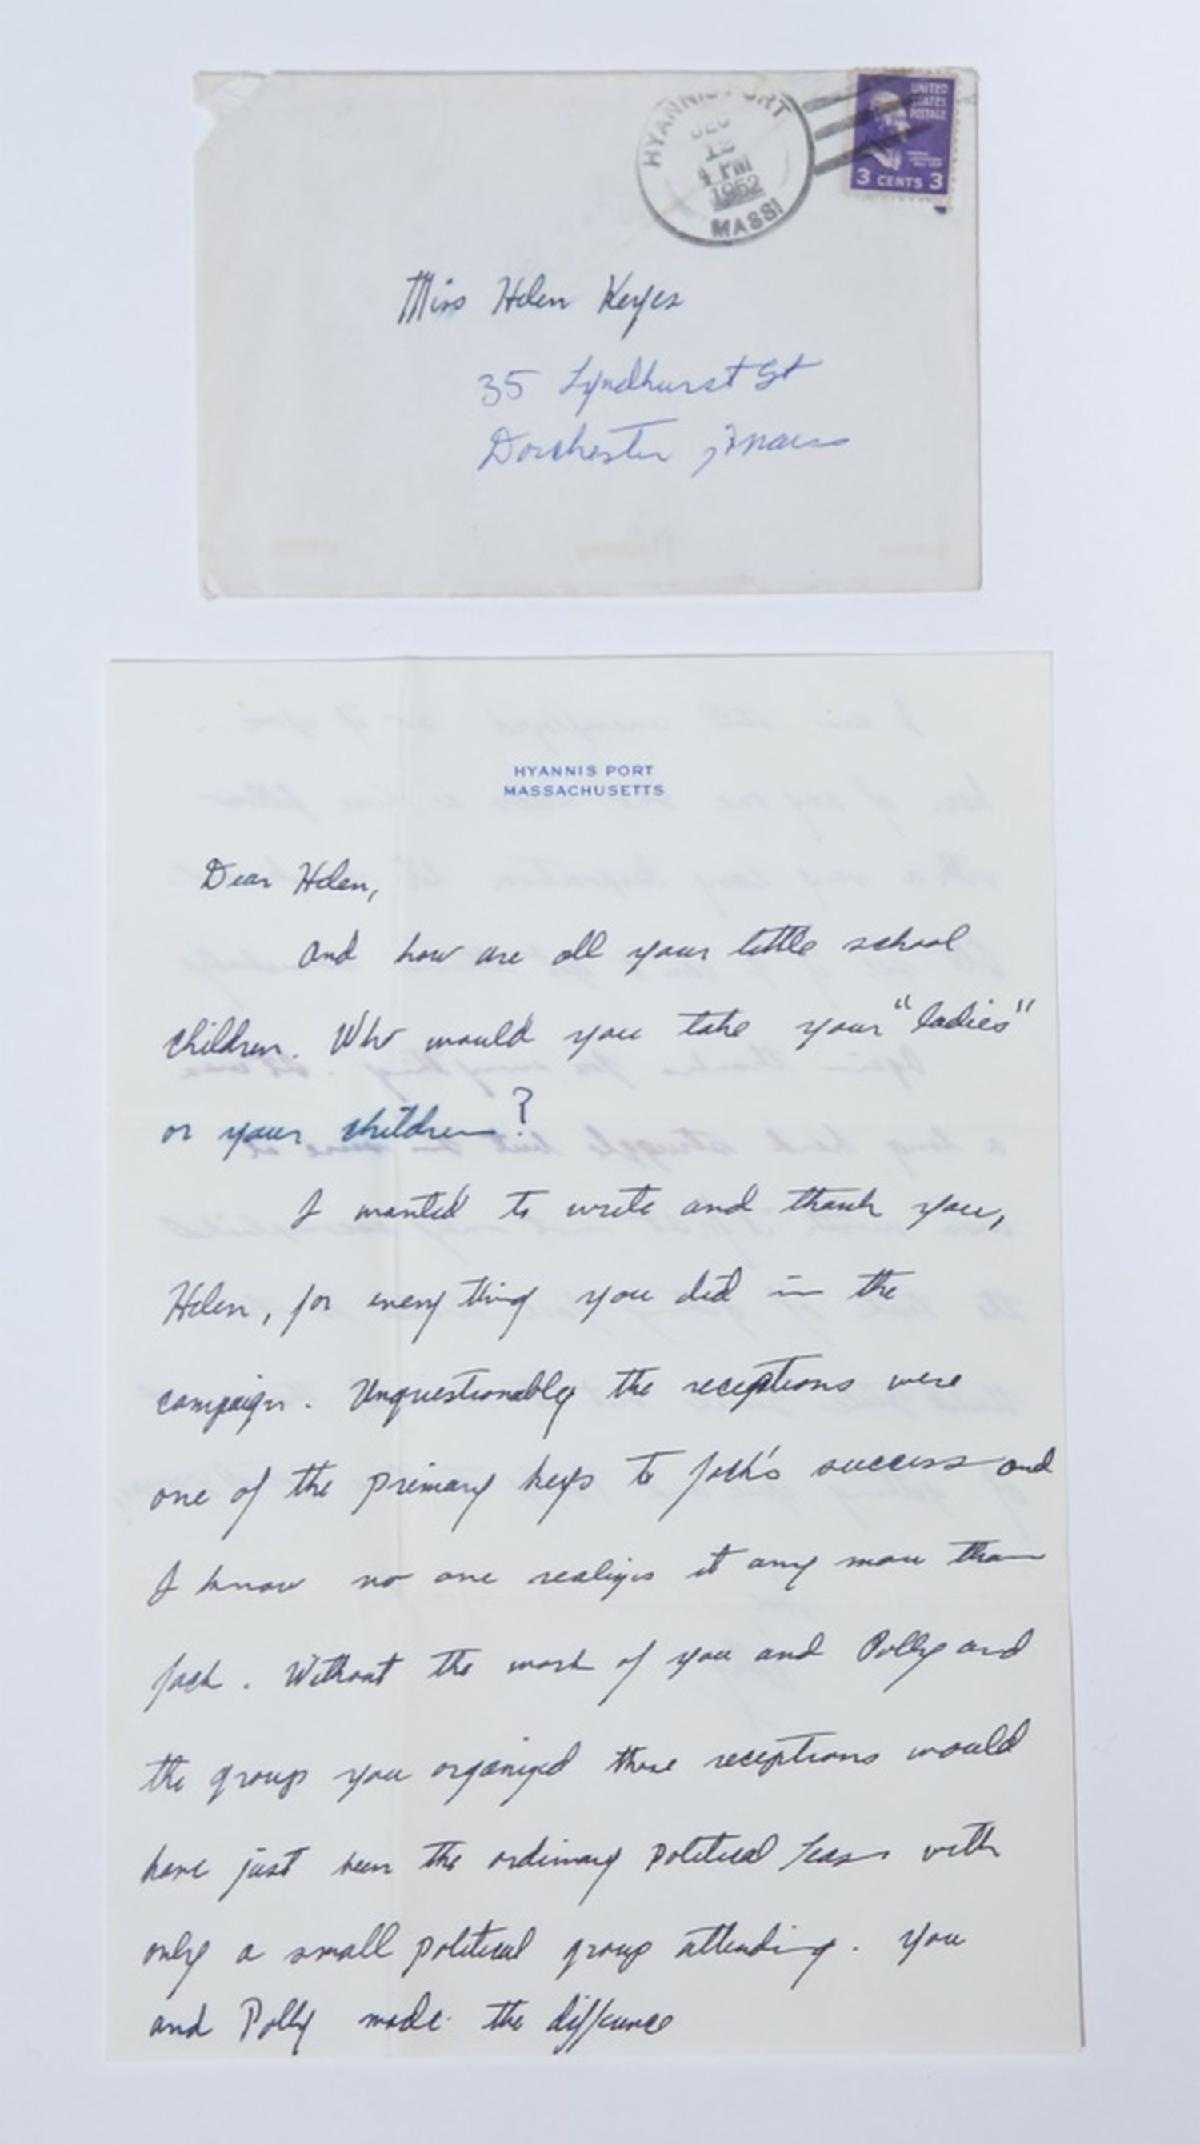 HYANNIS PORT
DEC
12
4 PM
1952
MASS
UNITED
STATES
POSTAGE
3 CENTS 3
Miss Helen Keyes
35 Lyndhurst St
Dorchester, Mass
HYANNIS PORT
MASSACHUSETTS
Dear Helen,
And how are all your little school
children. Who would you take your "ladies"
or your children?
I wanted to write and thank you,
Helen, for everything you did in the
campaign. Unquestionably the receptions were
one of the primary keys to Jack's success and
I know no one realizes it any more than
Jack. Without the work of you and Polly and
the group you organized those receptions would
have just been the ordinary political teas with
only a small political group attending. You
and Polly made the diffcunce